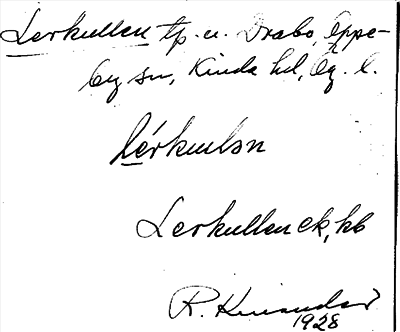 Lerkullen tp. u. Drabo, Oppe-
by sn, Kinda hd, Ög. l.
lérkuulən
Lerkullen ek, kb
R. Kinander
1928